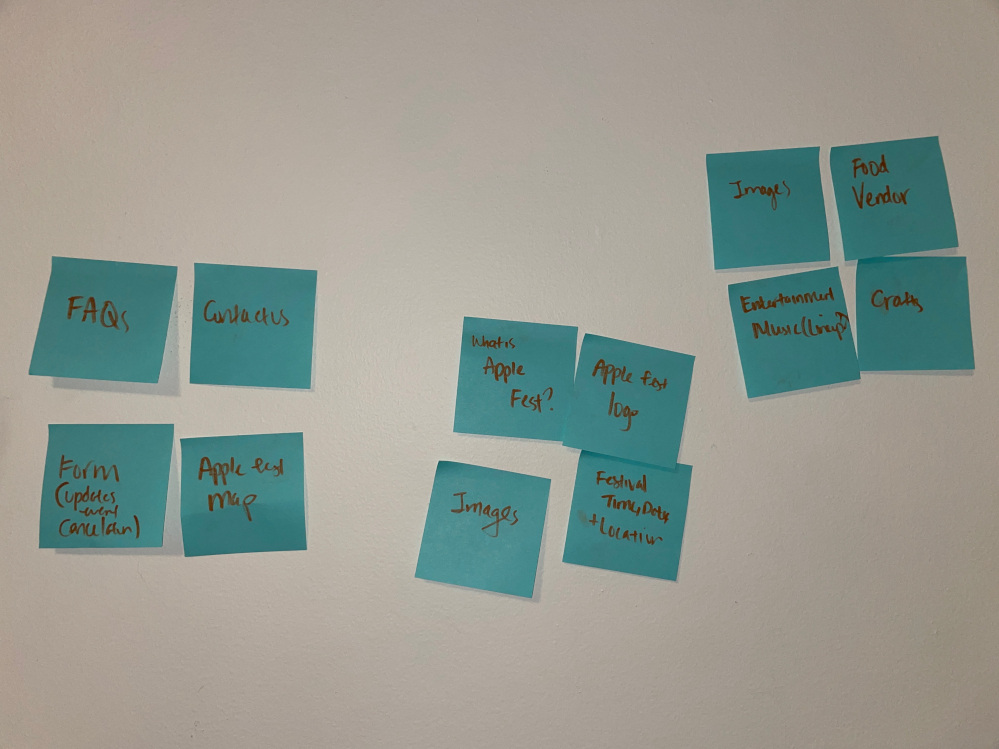 FAQs
Contact us
Form
(updates
event
cancelation)
Apple fest
map
What is
Apple
Fest?
Apple fest
logo
Images
Festival
Time, Dates
+ Location
Images
Food
Vendor
Entertainment
Music (Lineup)
Crafts